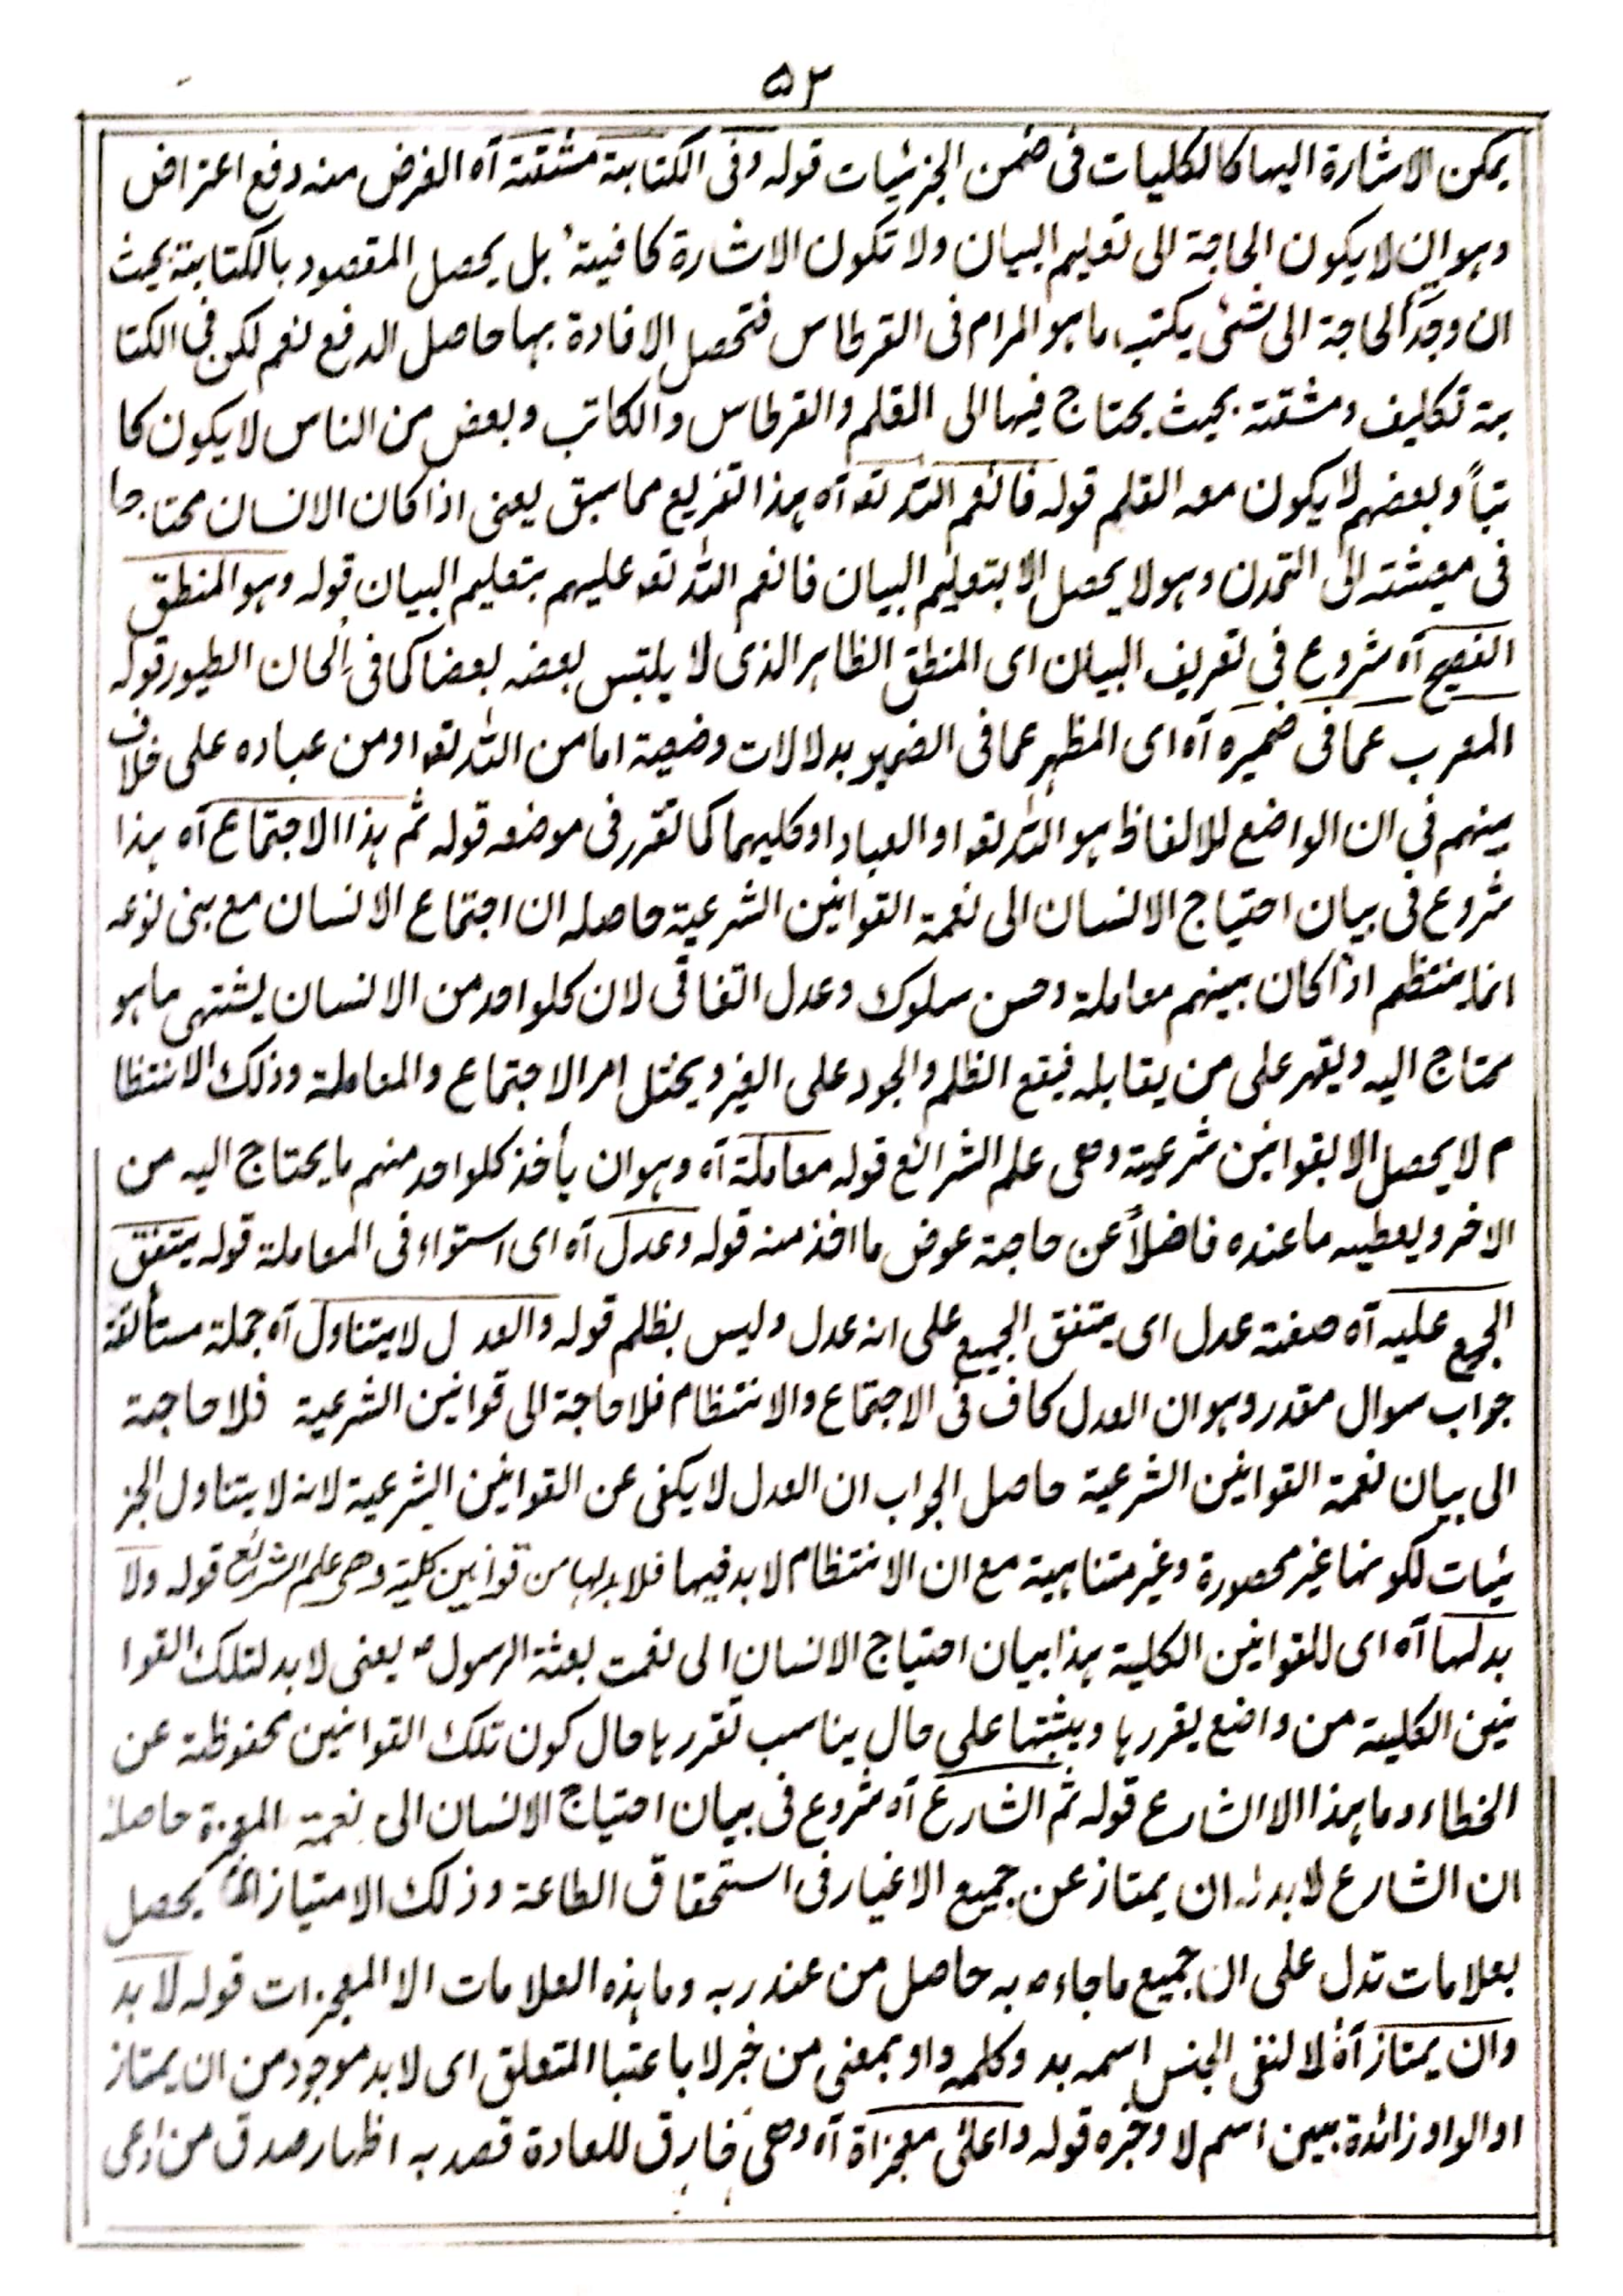 ۵۲
يمكن الاشارة اليها كالكليات فى ضمن الجزئيات قوله وفى الكتابة مشقة آه الغرض منه دفع اعتراض
وهو ان لا يكون الحاجة الى تعليم البيان ولا تكون الاشارة كافية بل يحصل المقصود بالكتابة بحيث
ان وجد الحاجة الى شئ يكتب ما هو المرام فى القرطاس فتحصل الافادة بها حاصل الدفع نعم لكن فى الكتا
بة تكليف ومشقة بحيث يحتاج فيها الى القلم والقرطاس والكاتب وبعض من الناس لا يكون كا
تباً وبعضهم لا يكون معه القلم قوله فانعم الله تعـ آه هذا تفريع مما سبق يعنى اذا كان الانسان محتاجا
فى معيشته الى التمدن وهو لا يحصل الا بتعليم البيان فانعم الله تعـ عليهم بتعليم البيان قوله وهو المنطق
الفصيح آه شروع فى تعريف البيان اى المنطق الظاهر الذى لا يلتبس بعضه بعضا كما فى ألحان الطيور قوله
المعرب عما فى ضميره آه اى المظهر عما فى الضمير بدلالات وضعية اما من الله تعـ او من عباده على خلاف
بينهم فى ان الواضع للالفاظ هو الله تعـ او العباد او كليهما كما تقرر فى موضعه قوله ثم هذا الاجتماع آه هذا
شروع فى بيان احتياج الانسان الى نعمة القوانين الشرعية حاصله ان اجتماع الانسان مع بنى نوعه
انما ينتظم اذا كان بينهم معاملة وحسن سلوك وعدل اتفاقى لان كلواحد من الانسان يشتهى ما هو
محتاج اليه ويقهر على من يقابله فيقع الظلم والجود على الغير ويختل امر الاجتماع والمعاملة وذلك الانتظا
م لا يحصل الا بقوانين شرعية وهى علم الشرائع قوله معاملة آه وهو ان يأخذ كلواحد منهم ما يحتاج اليه من
الاخر ويعطيه ما عنده فاضلاً عن حاجة عوض ما اخذ منه قوله وعدل آه اى استواء فى المعاملة قوله يتفق
الجميع عليه آه صفة عدل اى يتفق الجميع على انه عدل وليس بظلم قوله والعدل لا يتناول آه جملة مستأنفة
جواب سوال مقدر وهو ان العدل كاف فى الاجتماع والانتظام فلا حاجة الى قوانين الشرعية فلا حاجة
الى بيان نعمة القوانين الشرعية حاصل الجواب ان العدل لا يكفى عن القوانين الشرعية لانه لا يتناول الجز
ئيات لكونها غير محصورة وغير متناهية مع ان الانتظام لا بد فيها فلا بد لها من قوانين كلية وهى علم الشرائع قوله ولا
بد لها آه اى للقوانين الكلية هذا بيان احتياج الانسان الى نعمت بعثة الرسول ؐ يعنى لا بد لتلك القوا
نين الكلية من واضع يقررها ويثبتها على حال يناسب تقررها حال كون تلك القوانين محفوظة عن
الخطاء وما هذا الا الشارع قوله ثم الشارع آه شروع فى بيان احتياج الانسان الى نعمة المعجزة حاصله
ان الشارع لا بد له ان يمتاز عن جميع الاغيار فى استحقاق الطاعة وذلك الامتياز يحصل
بعلامات تدل على ان جميع ما جاء ؐ به حاصل من عند ربه وما هذه العلامات الا المعجزات قوله لا بد
وان يمتاز آه لا لنفى الجنس اسمه بد وكلمه واو بمعنى من خبر لا باعتبا المتعلق اى لا بد موجود من ان يمتاز
او الواو زائدة بين اسم لا وخبره قوله واعلى معجزاة آه وهى خارق للعادة قصد به اظهار صدق من ادعى